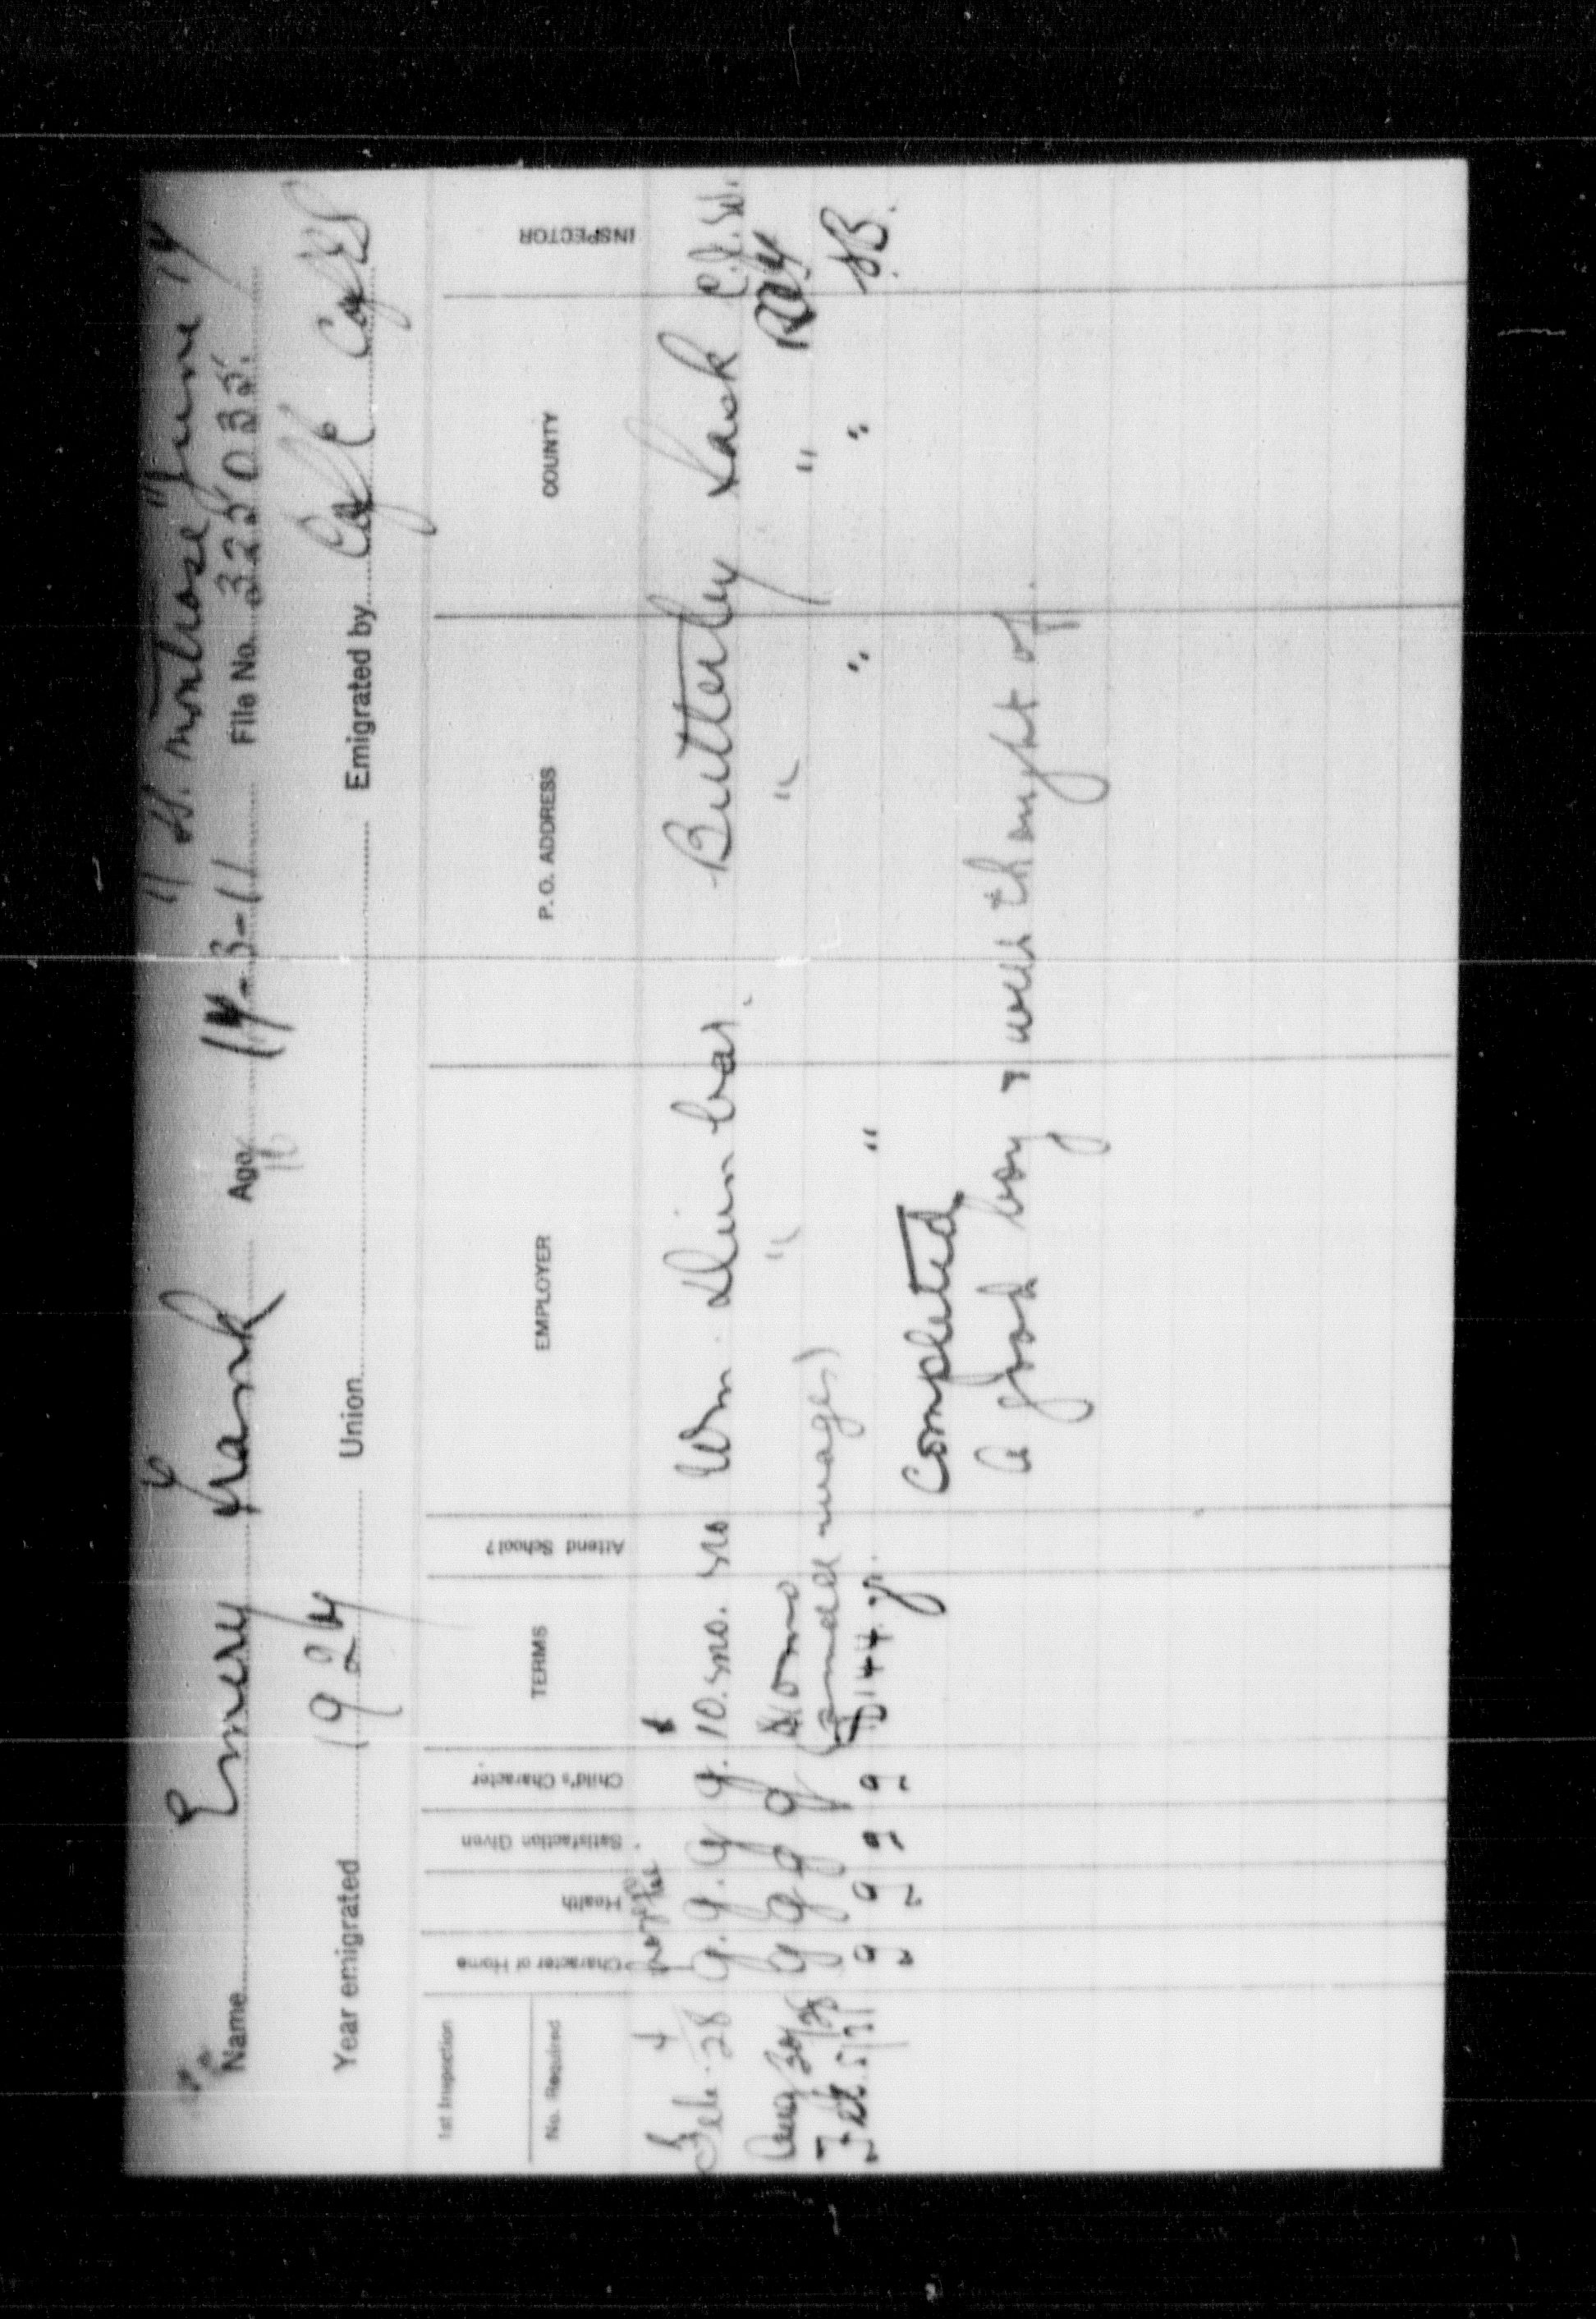 "S.S. Montrose" June 14
Name Emery Frank Age 14-3-11 File No. 322035.
16
Year emigrated 1924 Union Emigrated by
1st Inspection
No. Required Character of Home Health Satisfaction Given Child's Character TERMS Attend School? EMPLOYER P. O. ADDRESS COUNTY INSPECTOR
Feb. 4/28 g. g. g. g. 10. mo. no Wm. Dunbar. Butterley Sask
Aug 30/28 g g g g 10 mo " " "
(and wages)
Feb 5/31 g g g g $144 yr. " " " B.
Completed
a good boy & well thought of.